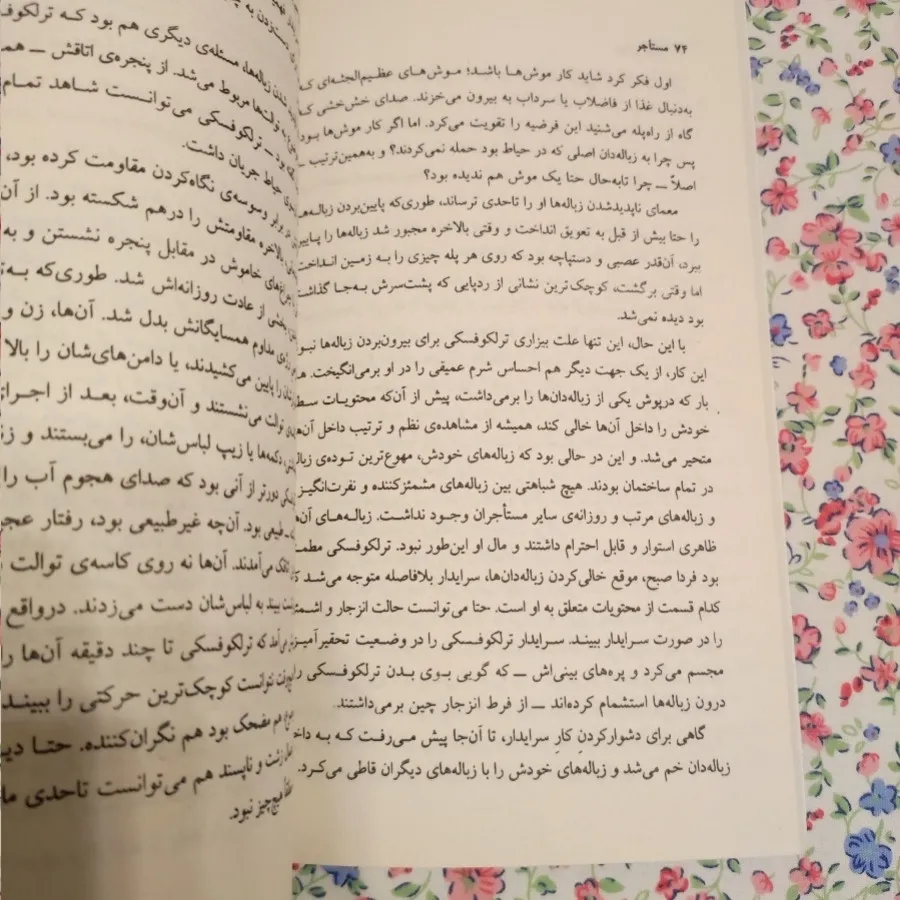 ۷۴ مستأجر
اول فکر کرد شاید کار موش‌ها باشد؛ موش‌های عظیم‌الجثه‌ای که
به‌دنبال غذا از فاضلاب یا سرداب به بیرون می‌خزند. صدای خش‌خشی که
گاه از راه‌پله می‌شنید این فرضیه را تقویت می‌کرد. اما اگر کار موش‌ها بود
پس چرا به زباله‌دان اصلی که در حیاط بود حمله نمی‌کردند؟ و به‌همین‌ترتیب ــ
اصلاً ــ چرا تابه‌حال حتا یک موش هم ندیده بود؟
معمای ناپدیدشدن زباله‌ها او را تاحدی ترساند، طوری‌که پایین‌بردن زباله‌ها
را حتا بیش از قبل به تعویق انداخت و وقتی بالاخره مجبور شد زباله‌ها را پایین
ببرد، آن‌قدر عصبی و دستپاچه بود که روی هر پله چیزی را به زمین انداخت
اما وقتی برگشت، کوچک‌ترین نشانی از ردپایی که پشت‌سرش به‌جا گذاشته
بود دیده نمی‌شد.
با این حال، این تنها علت بیزاری ترلکوفسکی برای بیرون‌بردن زباله‌ها نبود
این کار، از یک جهت دیگر هم احساس شرم عمیقی را در او برمی‌انگیخت.
بار که درپوش یکی از زباله‌دان‌ها را برمی‌داشت، پیش از آن‌که محتویات سطل
خودش را داخل آن‌ها خالی کند، همیشه از مشاهده‌ی نظم و ترتیب داخل آن‌ها
متحیر می‌شد. و این در حالی بود که زباله‌های خودش، مهوع‌ترین توده‌ی
در تمام ساختمان بودند. هیچ شباهتی بین زباله‌های مشمئزکننده و نفرت‌انگیز
و زباله‌های مرتب و روزانه‌ی سایر مستأجران وجود نداشت. زباله‌های آن‌ها
ظاهری استوار و قابل احترام داشتند و مال او این‌طور نبود. ترلکوفسکی
بود فردا صبح، موقع خالی‌کردن زباله‌دان‌ها، سرایدار بلافاصله متوجه می‌شد
کدام قسمت از محتویات متعلق به او است. حتا می‌توانست حالت انزجار و
را در صورت سرایدار ببیند. سرایدار ترلکوفسکی را در وضعیت تحقیرآمیز
مجسم می‌کرد و پره‌های بینی‌اش ــ که گویی بوی بدن ترلکوفسکی را
درون زباله‌ها استشمام کرده‌اند ــ از فرط انزجار چین برمی‌داشتند.
گاهی برای دشوارکردنِ کارِ سرایدار، تا آن‌جا پیش می‌رفت که به
زباله‌دان خم می‌شد و زباله‌های خودش را با زباله‌های دیگران قاطی می‌کرد.
دست‌زدن به
شدن زباله‌ها، مسئله‌ی دیگری هم بود که
توالت‌ها مربوط می‌شد. از پنجره‌ی اتاقش ــ
بود ــ ترلکوفسکی می‌توانست شاهد تمام
حیاط جریان داشت.
وسوسه‌ی نگاه‌کردن مقاومت کرده بود،
بالاخره مقاومتش را درهم شکسته بود. از آن
خاموش در مقابل پنجره نشستن و به
بخشی از عادت روزانه‌اش شد. طوری‌که
مداوم همسایگانش بدل شد. آن‌ها، زن و
را پایین می‌کشیدند، یا دامن‌های‌شان را بالا
توالت می‌نشستند و آن‌وقت، بعد از
دکمه‌ها یا زیپ لباس‌شان، را می‌بستند و
دورتر از آنی بود که صدای هجوم آب را
طبیعی بود. آن‌چه غیرطبیعی بود، رفتار
می‌آمدند. آن‌ها نه روی کاسه‌ی توالت
ببیند به لباس‌شان دست می‌زدند. درواقع
می‌آمد که ترلکوفسکی تا چند دقیقه آن‌ها را
نتوانست کوچک‌ترین حرکتی را ببیند
هم مضحک بود هم نگران‌کننده. حتا
زشت و ناپسند هم می‌توانست تاحدی
هیچ‌چیز نبود.